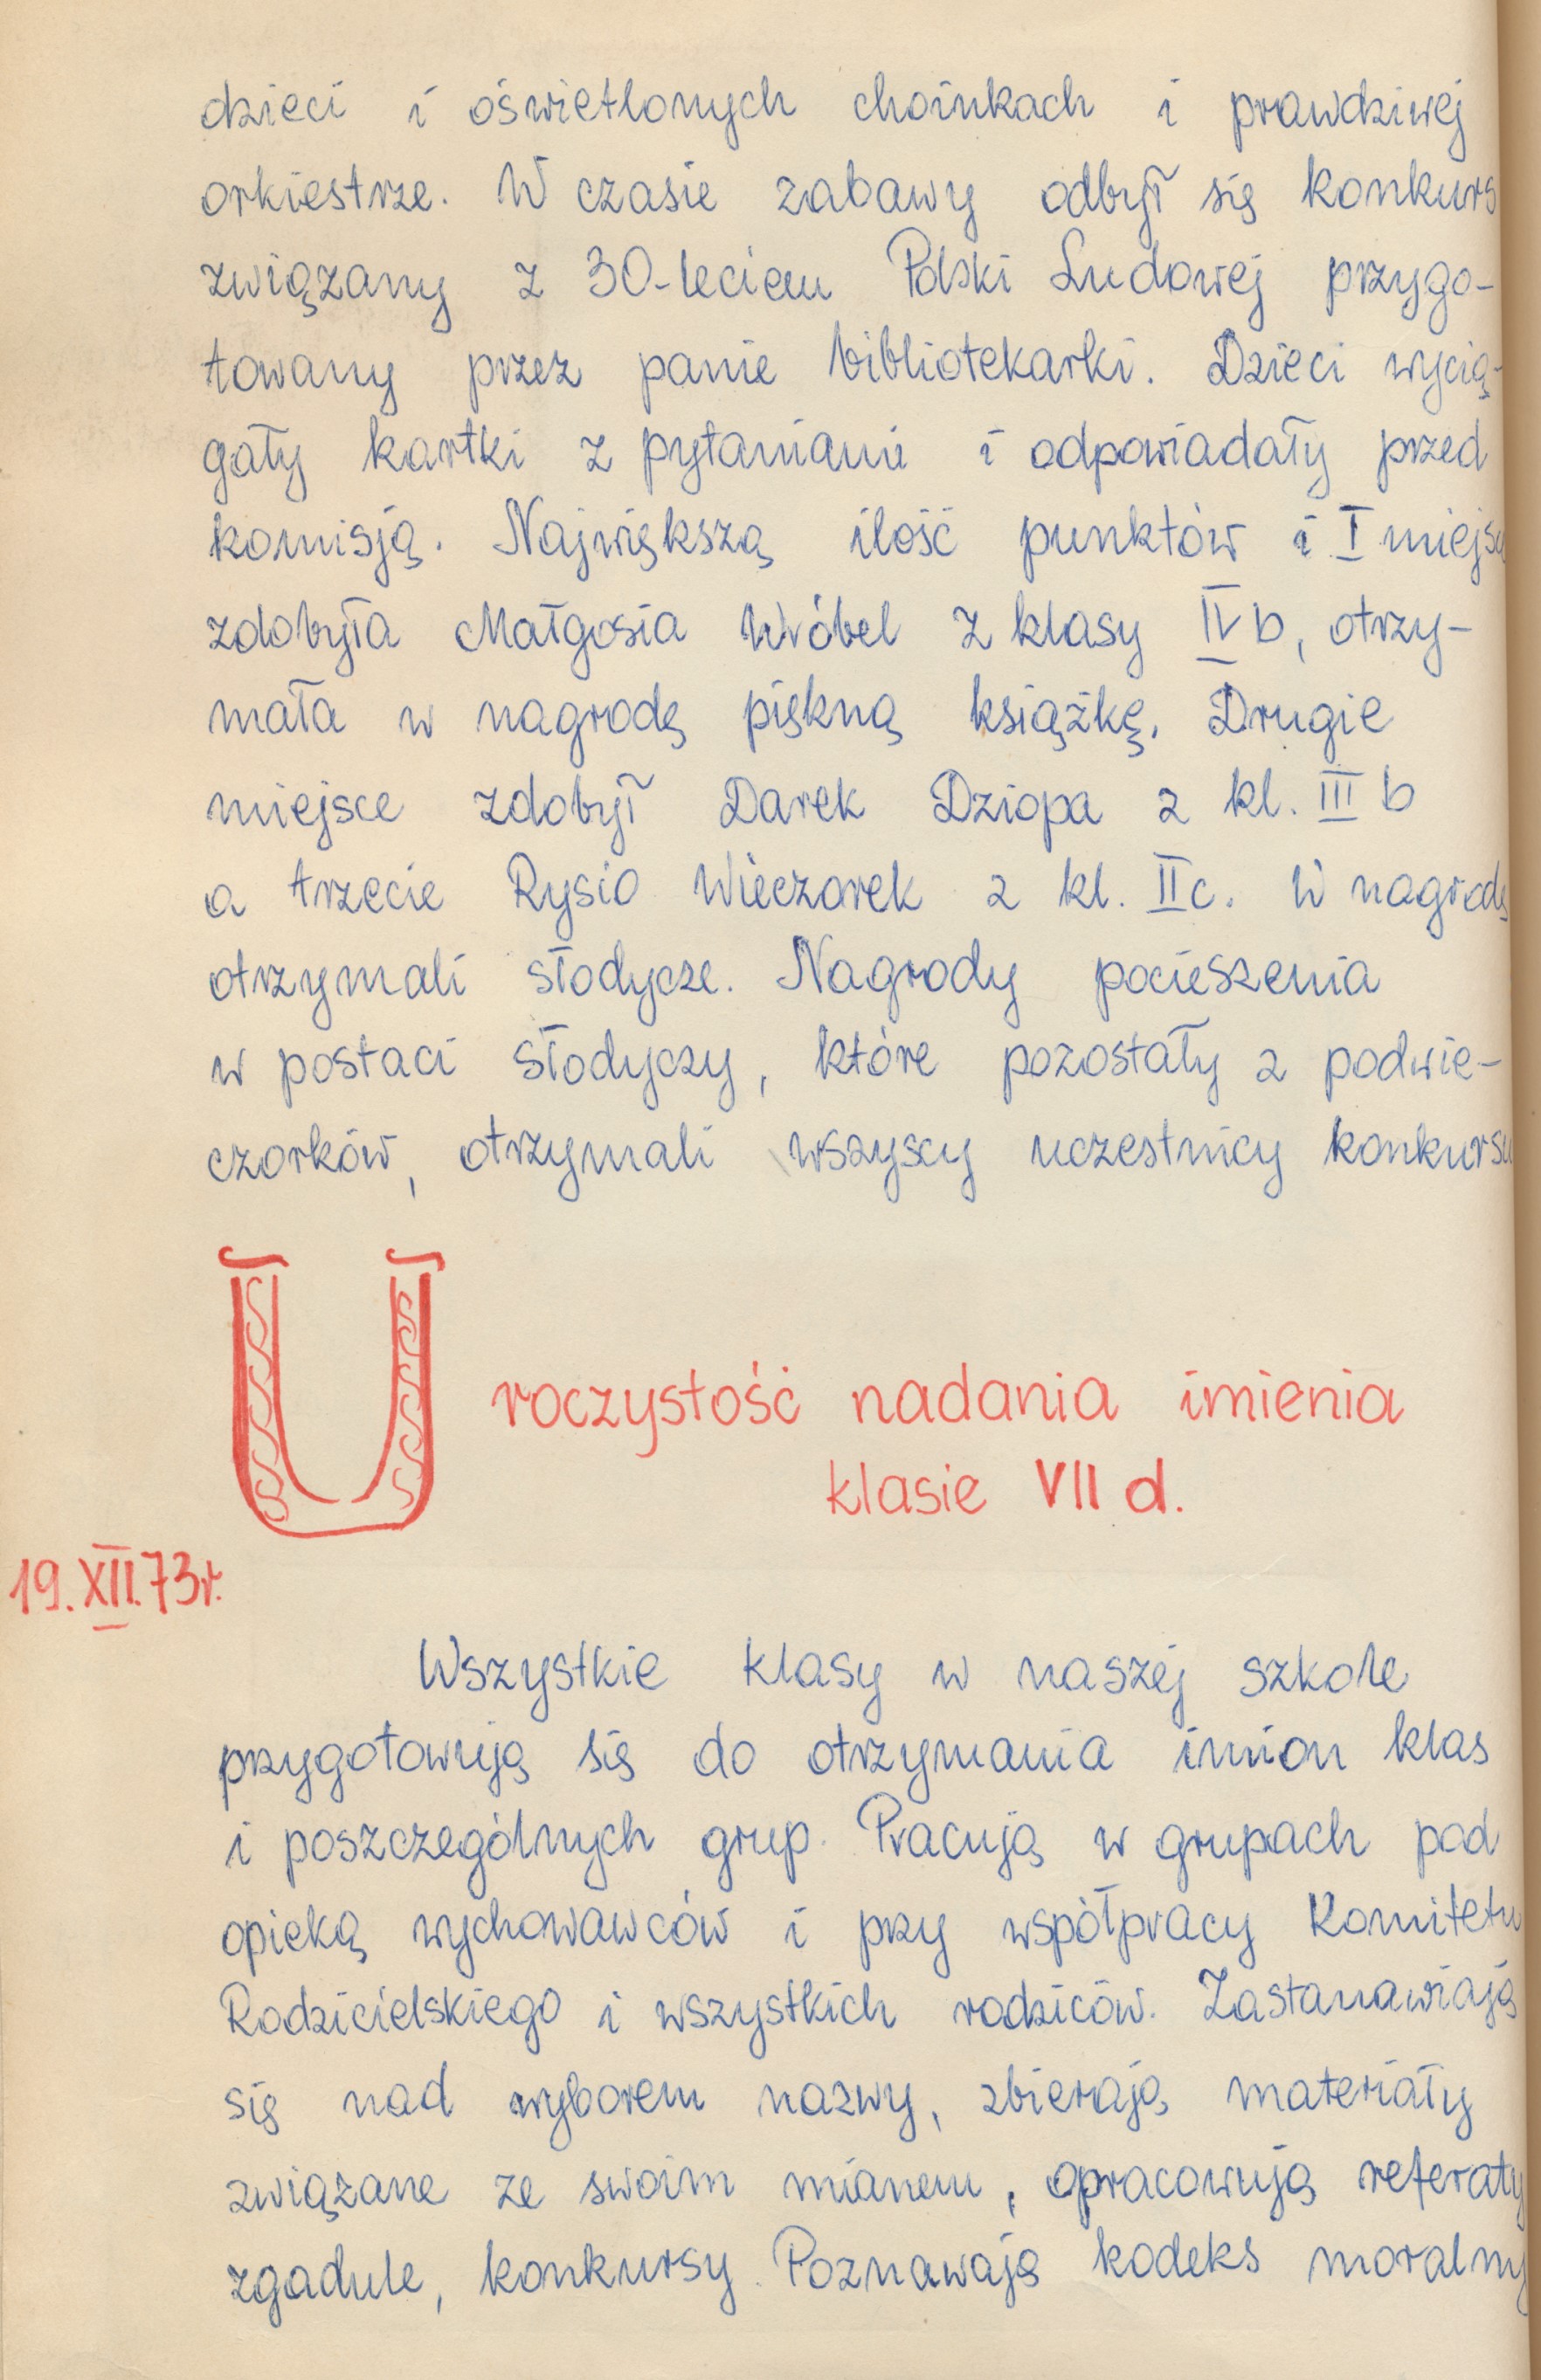 dzieci i oświetlonych choinkach i prawdziwej
orkiestrze. W czasie zabawy odbył się konkurs
związany z 30-leciem Polski Ludowej przygo-
towany przez panie bibliotekarki. Dzieci wycią-
gały kartki z pytaniami i odpowiadały przed
komisją. Największą ilość punktów i I miejsce
zdobyła Małgosia Wróbel z klasy IV b, otrzy-
mała w nagrodę piękną książkę. Drugie
miejsce zdobył Darek Dziopa z kl. III b
a trzecie Rysio Wieczorek z kl. II c. W nagrodę
otrzymali słodycze. Nagrody pocieszenia
w postaci słodyczy, które pozostały z podwie-
czorków, otrzymali wszyscy uczestnicy konkursu
Uroczystość nadania imienia
klasie VII d.
19.XII.73r.
Wszystkie klasy w naszej szkole
przygotowują się do otrzymania imion klas
i poszczególnych grup. Pracują w grupach pod
opieką wychowawców i przy współpracy Komitetu
Rodzicielskiego i wszystkich rodziców. Zastanawiają
się nad wyborem nazwy, zbierają materiały
związane ze swoim mianem, opracowują referaty
zgadule, konkursy. Poznawają kodeks moralny